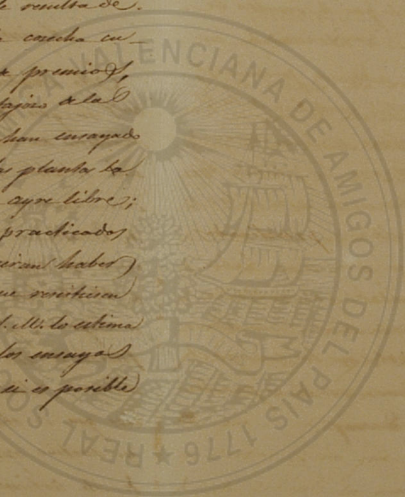 de resulta de
cosecha cu_
premios,
tajoso a la
han ensayado
planta la
ayre libre;
practicados,
haber
que remitiesen
S.M. lo estima
los ensayos
si es posible
REAL SOCIEDAD ECONÓMICA VALENCIANA DE AMIGOS DEL PAIS 1776